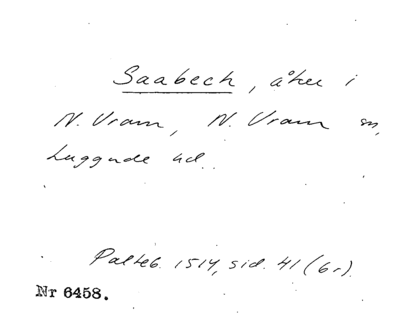 Saabech, åker i
N. Vram, N. Vram sn,
Luggude hd.
Palteb. 1514, sid. 41 (br).
Nr 6458.